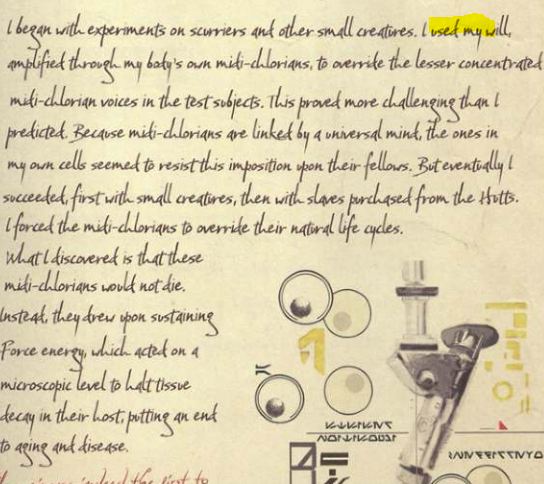 I began with experiments on scurriers and other small creatures. I used my will,
amplified through my body's own midi-chlorians, to override the lesser concentrated
midi-chlorian voices in the test subjects. This proved more challenging than I
predicted. Because midi-chlorians are linked by a universal mind, the ones in
my own cells seemed to resist this imposition upon their fellows. But eventually I
succeeded, first with small creatures, then with slaves purchased from the Hutts.
I forced the midi-chlorians to override their natural life cycles.
What I discovered is that these
midi-chlorians would not die.
Instead, they drew upon sustaining
Force energy, which acted on a
microscopic level to halt tissue
decay in their host, putting an end
to aging and disease.
indeed the first to